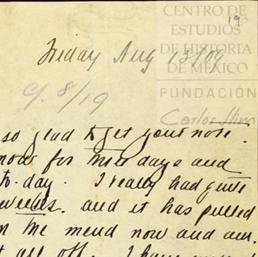 CENTRO DE
ESTUDIOS
DE HISTORIA
DE MÉXICO
FUNDACIÓN
Carlos Slim
19
Friday Aug 13/09
9. 8/19
so glad to get your note.
now for two days and
to-day. I really had quite
weeks. and it has pulled
on the mend now and am
all off. I have